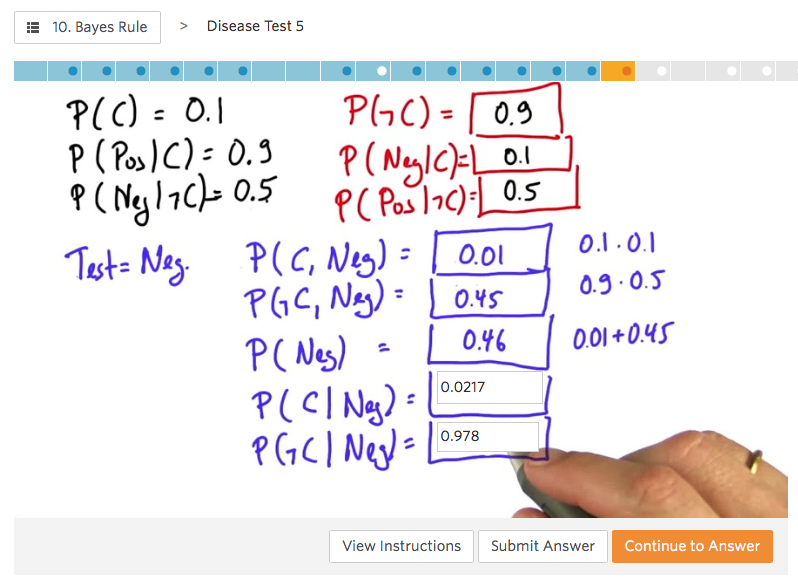 10. Bayes Rule > Disease Test 5
P(C) = 0.1 P(¬C) = 0.9
P(Pos|C) = 0.9 P(Neg|C) = 0.1
P(Neg|¬C) = 0.5 P(Pos|¬C) = 0.5
Test = Neg. P(C, Neg) = 0.01 0.1 · 0.1
P(¬C, Neg) = 0.45 0.9 · 0.5
P(Neg) = 0.46 0.01 + 0.45
P(C|Neg) = 0.0217
P(¬C|Neg) = 0.978
View Instructions Submit Answer Continue to Answer